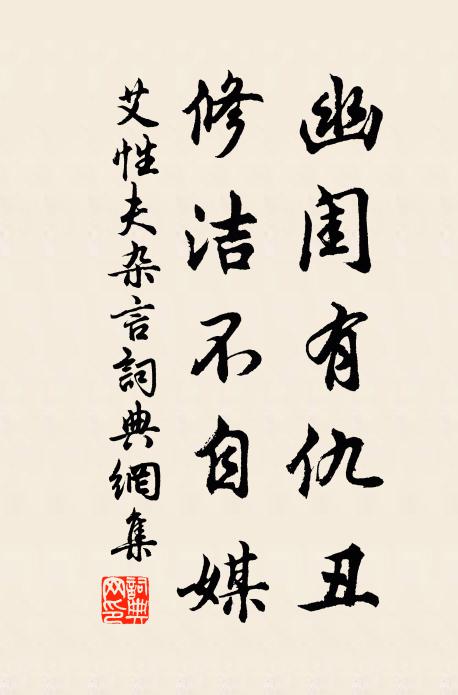 幽闺有仇丑
修洁不自媒
艾性夫杂言詞典網集
詞典网印